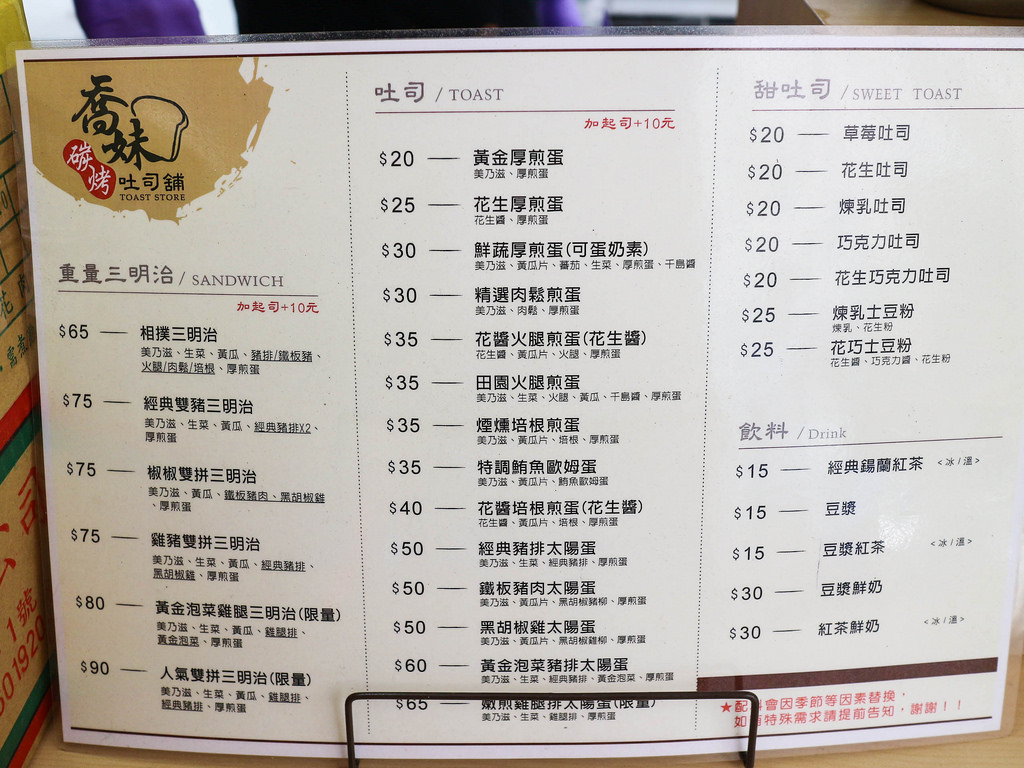 喬妹
碳烤
吐司舖
TOAST STORE
重量三明治 / SANDWICH
加起司+10元
$65 — 相撲三明治
美乃滋、生菜、黃瓜、豬排/鐵板豬、
火腿/肉鬆/培根、厚煎蛋
$75 — 經典雙豬三明治
美乃滋、生菜、黃瓜、經典豬排X2、
厚煎蛋
$75 — 椒椒雙拼三明治
美乃滋、黃瓜、鐵板豬肉、黑胡椒雞
、厚煎蛋
$75 — 雞豬雙拼三明治
美乃滋、生菜、黃瓜、經典豬排、
黑胡椒雞、厚煎蛋
$80 — 黃金泡菜雞腿三明治(限量)
美乃滋、生菜、黃瓜、雞腿排、
黃金泡菜、厚煎蛋
$90 — 人氣雙拼三明治(限量)
美乃滋、生菜、黃瓜、雞腿排、
經典豬排、厚煎蛋
吐司 / TOAST
加起司+10元
$20 — 黃金厚煎蛋
美乃滋、厚煎蛋
$25 — 花生厚煎蛋
花生醬、厚煎蛋
$30 — 鮮蔬厚煎蛋(可蛋奶素)
美乃滋、黃瓜片、蕃茄、生菜、厚煎蛋、千島醬
$30 — 精選肉鬆煎蛋
美乃滋、肉鬆、厚煎蛋
$35 — 花醬火腿煎蛋(花生醬)
花生醬、黃瓜片、火腿、厚煎蛋
$35 — 田園火腿煎蛋
美乃滋、生菜、火腿、黃瓜、千島醬、厚煎蛋
$35 — 煙燻培根煎蛋
美乃滋、黃瓜片、培根、厚煎蛋
$35 — 特調鮪魚歐姆蛋
美乃滋、黃瓜片、鮪魚歐姆蛋
$40 — 花醬培根煎蛋(花生醬)
花生醬、黃瓜片、培根、厚煎蛋
$50 — 經典豬排太陽蛋
美乃滋、生菜、經典豬排、厚煎蛋
$50 — 鐵板豬肉太陽蛋
美乃滋、黃瓜片、黑胡椒豬柳、厚煎蛋
$50 — 黑胡椒雞太陽蛋
美乃滋、黃瓜片、黑胡椒雞柳、厚煎蛋
$60 — 黃金泡菜豬排太陽蛋
美乃滋、生菜、經典豬排、黃金泡菜、厚煎蛋
$65 — 嫩煎雞腿排太陽蛋(限量)
美乃滋、生菜、雞腿排、厚煎蛋
甜吐司 / SWEET TOAST
$20 — 草莓吐司
$20 — 花生吐司
$20 — 煉乳吐司
$20 — 巧克力吐司
$20 — 花生巧克力吐司
$25 — 煉乳士豆粉
煉乳、花生粉
$25 — 花巧士豆粉
花生醬、巧克力醬、花生粉
飲料 / Drink
$15 — 經典錫蘭紅茶 <冰/溫>
$15 — 豆漿
$15 — 豆漿紅茶 <冰/溫>
$30 — 豆漿鮮奶
$30 — 紅茶鮮奶 <冰/溫>
★配料會因季節等因素替換，
如有特殊需求請提前告知，謝謝！！